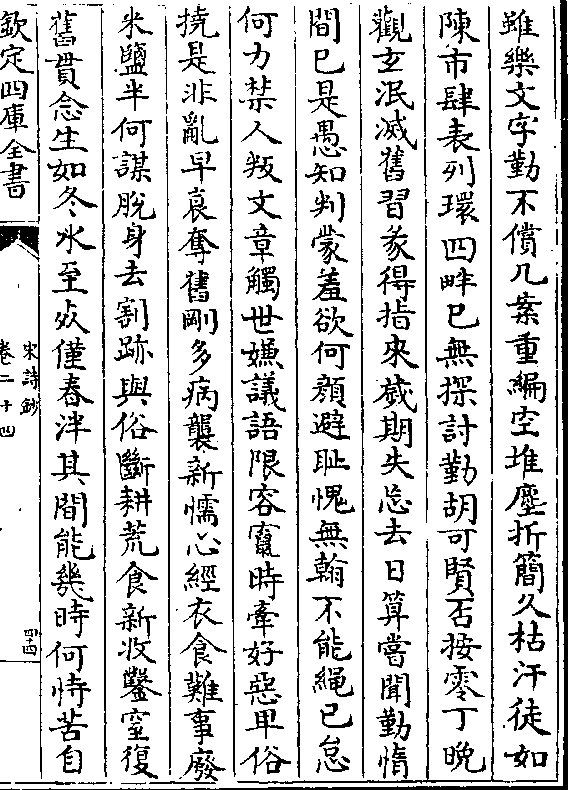 雖樂文字勤不償几案重編空堆塵折簡久枯汗徒如
陳市肆表列環四畔已無探討勤胡可賢否按零丁晚
觀玄泯滅舊習彖得指來歲期失忘去日算嘗聞勤惰
間已是愚知判蒙羞欲何顔避恥愧無翰不能繩已怠
何力禁人叛文章觸世嫌議語限容竄時牽好惡畢俗
撓是非亂早衰奪舊剛多病襲新懦心經衣食難事廢
米鹽半何謀脫身去割跡與俗斷耕荒食新收鑿室復
舊貫念生如冬氷至死僅春泮其間能幾時何恃苦自
欽定四庫全書
宋詩鈔
卷二十四
四十四